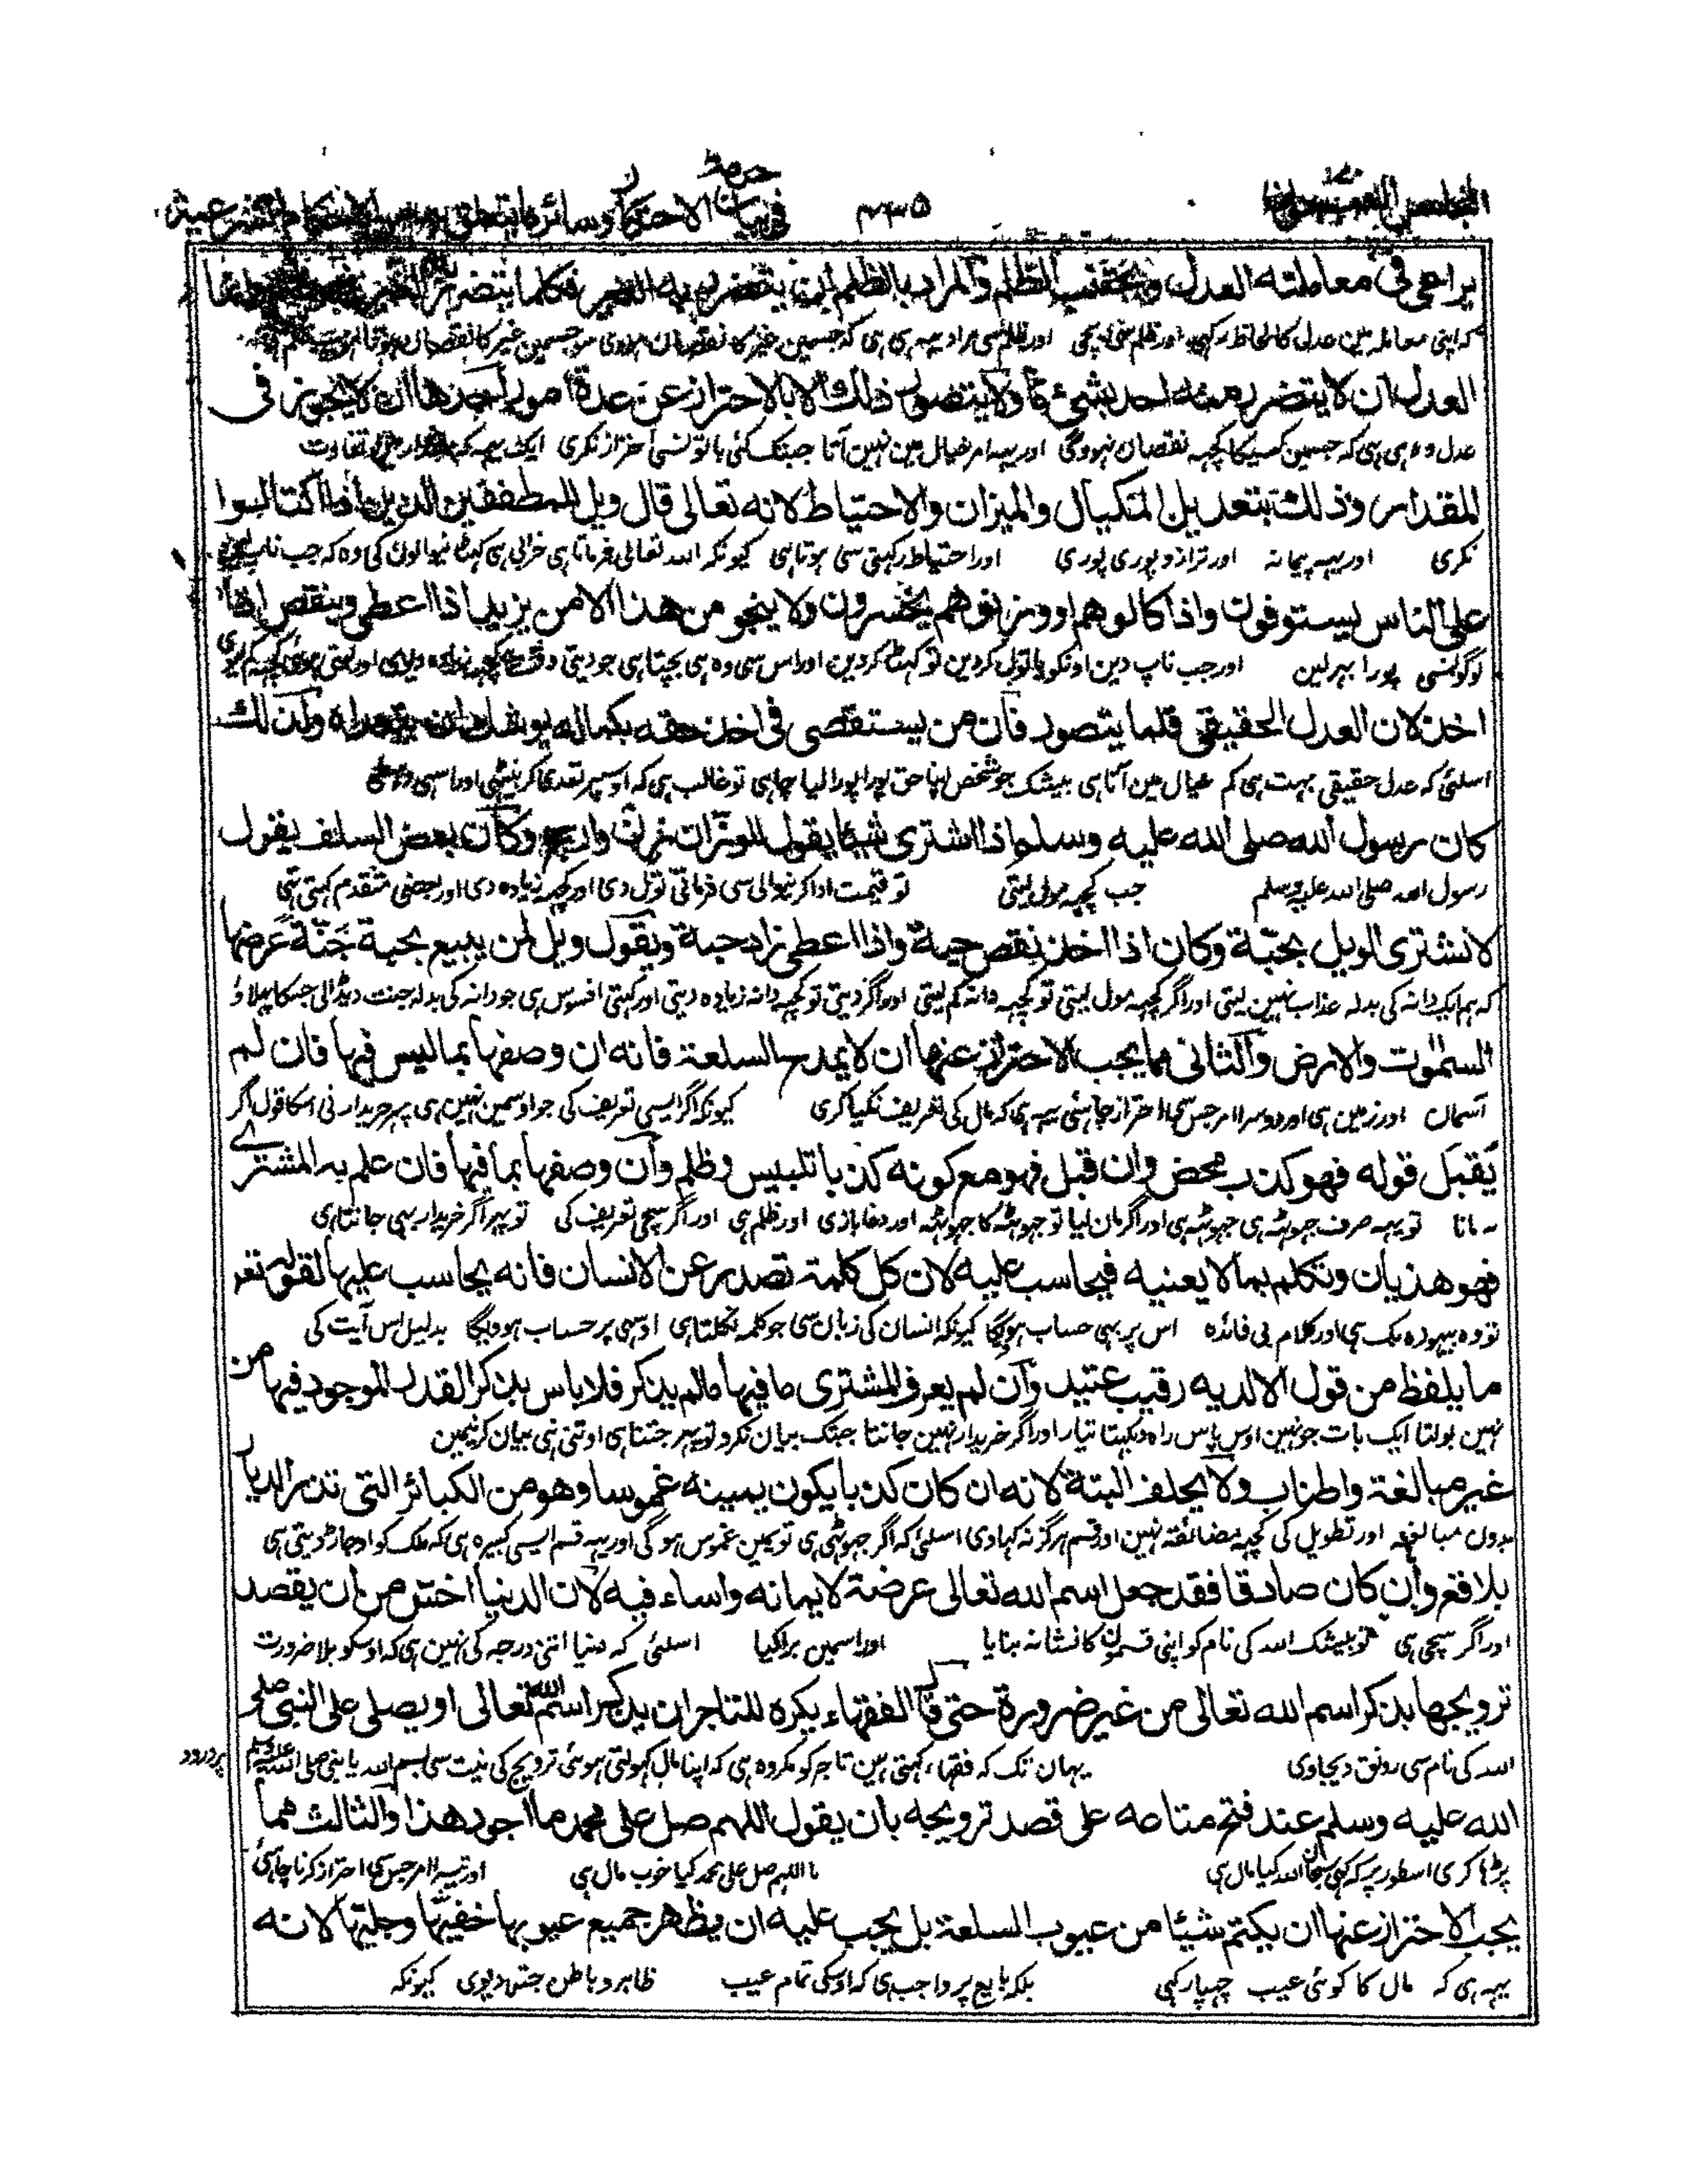 فى بيان حرمة الاحتكار وسائر ما يتعلق الاحكام الشرعية
۴۳۵
يراعى فى معاملته العدل ويجتنب الظلم والمراد بالظلم ان يتضرر به الغير فكلما يتضرر به الغير
کہ اپنی معاملہ مین عدل کا لحاظ رکہی اور ظلم سی بچی اور ظلم سی مراد یہہ ہی کہ جسمین غیر کا نقصان ہووی سو جسمین غیر کا نقصان ہو
العدل ان لا يتضرر منه احد بشئ ما ولا يتصور ذلك الا بالاحتراز عن عدة امور احدها ان لا يجوز فى
عدل وہ ہی ہی کہ جسمین کسیکا کچہہ نقصان نہووگی اور یہہ امر خیال مین نہین آتا جبتک کئی باتونسی احتراز نکری ایک یہہ کہ تفاوت
المقدار وذلك بتعديل المكيال والميزان والاحتياط لانه تعالى قال ويل للمطففين الذين اذا اكتالوا
نکری اور یہہ پیمانہ اور ترازو پوری پوری اور احتیاط رکہنی سی ہوتا ہی کیونکہ اللہ تعالی فرماتا ہی خرابی ہی گہٹانیوالون کی وہ کہ جب ناپ لین
على الناس يستوفون واذا كالوهم او وزنوهم يخسرون ولا ينجو من هذا الا من يزيد اذا اعطى وينقص اذا
لوگونسی پورا بہر لین اور جب ناپ دین اونکو یا تول کر دین تو گہٹا کر دین اور اس سی وہ ہی بچتا ہی جو دیتی وقت کچہہ زیادہ دی اور لیتی
اخذ لان العدل الحقيقى قلما يتصور فان من يستقصى فى اخذ حقه بكماله يوشك ان يتعداه ولذلك
اسلئی کہ عدل حقیقی بہت ہی کم خیال مین آتا ہی بیشک جو شخص اپنا حق پورا پورا لیا چاہی تو غالب ہی کہ اوسپر تعدی کر بیٹہی اور اسی واسطی
كان رسول الله صلى الله عليه وسلم اذا اشترى شيئا يقول للوزان زن وارجح وكان بعض السلف يقول
رسول اللہ صلی اللہ علیہ وسلم جب کچہہ مول لیتی تو قیمت ادا کرنیوالی سی فرماتی تول دی اور کچہہ زیادہ دی اور بعضی متقدم کہتی تہی
لا نشترى الويل بحبة وكان اذا اخذ نقص حبة واذا اعطى زاد حبة ويقول ويل لمن يبيع بحبة جنة عرضها
کہ ہم ایک دانہ کی بدلہ عذاب نہین لیتی اور اگر کچہہ مول لیتی تو کچہہ دانہ کم لیتی اور اگر دیتی تو کچہہ دانہ زیادہ دیتی اور کہتی افسوس ہی جو دانہ کی بدلہ جنت دیڈالی جسکا پہیلاؤ
السموت والارض والثانى مما يجب الاحتراز عنها ان لا يمدح السلعة فانه ان وصفها بما ليس فيها فان لم
آسمان اور زمین ہی اور دوسرا امر جس سی احتراز چاہئی یہہ ہی کہ مال کی تعریف نکیا کری کیونکہ اگر ایسی تعریف کی جو اوسمین نہین ہی پہر خریدار نی اسکا قول اگر
يقبل قوله فهو كذب محض وان قبل فهو مع كونه كذبا تلبيس وظلم وان وصفها بما فيها فان علم به المشترى
نہ مانا تو یہہ صرف جہوٹہہ ہی جہوٹہہ ہی اور اگر مان لیا تو جہوٹہہ کا جہوٹہہ اور دغابازی اور ظلم ہی اور اگر سچی تعریف کی تو پہر اگر خریدار بہی جانتا ہی
فهو هذيان وتكلم بما لا يعنيه فيحاسب عليه لان كل كلمة تصدر عن الانسان فانه يحاسب عليها لقوله تعا
تو وہ بیہودہ بک ہی اور کلام بی فائدہ اس پر بہی حساب ہوگا کیونکہ انسان کی زبان سی جو کلمہ نکلتا ہی اوسی پر حساب ہووگا بدلیل اس آیت کی
ما يلفظ من قول الا لديه رقيب عتيد وان لم يعرف المشترى ما فيها ما لم يذكر فلا باس بذكر القدر الموجود فيها من
نہین بولتا ایک بات جو نہین اوس پاس راہ دیکہتا تیار اور اگر خریدار نہین جانتا جبتک بیان نکرو تو پہر جتنا ہی اوتنی ہی بیان کرنیمین
غير مبالغة واطناب ولا يحلف البتة لانه ان كان كذبا يكون يمينه غموسا وهو من الكبائر التى تذر الديار
بدون مبالغہ اور تطویل کی کچہہ مضائقہ نہین اور قسم ہرگز نہ کہاوی اسلئی کہ اگر جہوٹی ہی تو یمین غموس ہوگی اور یہہ قسم ایسی کبیرہ ہی کہ ملک کو اوجاڑ دیتی ہی
بلاقع وان كان صادقا فقد جعل اسم الله تعالى عرضة لايمانه واساء فيه لان الدنيا اخس من ان يقصد
اور اگر سچی ہی تو بیشک اللہ کی نام کو اپنی قسمون کا نشانہ بنایا اور اسمین برا کیا اسلئی کہ دنیا اتنی درجہ کی نہین ہی کہ اوسکو بلا ضرورت
ترويجها بذكر اسم الله تعالى من غير ضرورة حتى قال الفقهاء يكره للتاجر ان يذكر اسم الله تعالى او يصلى على النبى صلى
اللہ کی نام سی رونق دیجاوی یہان تک کہ فقہاء کہتی ہین تاجر کو مکروہ ہی کہ اپنا مال کہولتی ہوئی ترویج کی نیت سی بسم اللہ یا نبی صلی اللہ علیہ وسلم پر درود
الله عليه وسلم عند فتح متاعه على قصد ترويجه بان يقول اللهم صل على محمد ما اجود هذا والثالث مما
پڑہا کری اسطور پر کہ کہی سبحان اللہ کیا مال ہی یا اللہم صل علی محمد کیا خوب مال ہی اور تیسرا امر جس سی احتراز کرنا چاہئی
يجب الاحتراز عنها ان يكتم شيئا من عيوب السلعة بل يجب عليه ان يظهر جميع عيوبها خفيها وجليها لانه
یہہ ہی کہ مال کا کوئی عیب چہپا رکہی بلکہ بایع پر واجب ہی کہ اوسکی تمام عیب ظاہر و باطن جتا دیوی کیونکہ